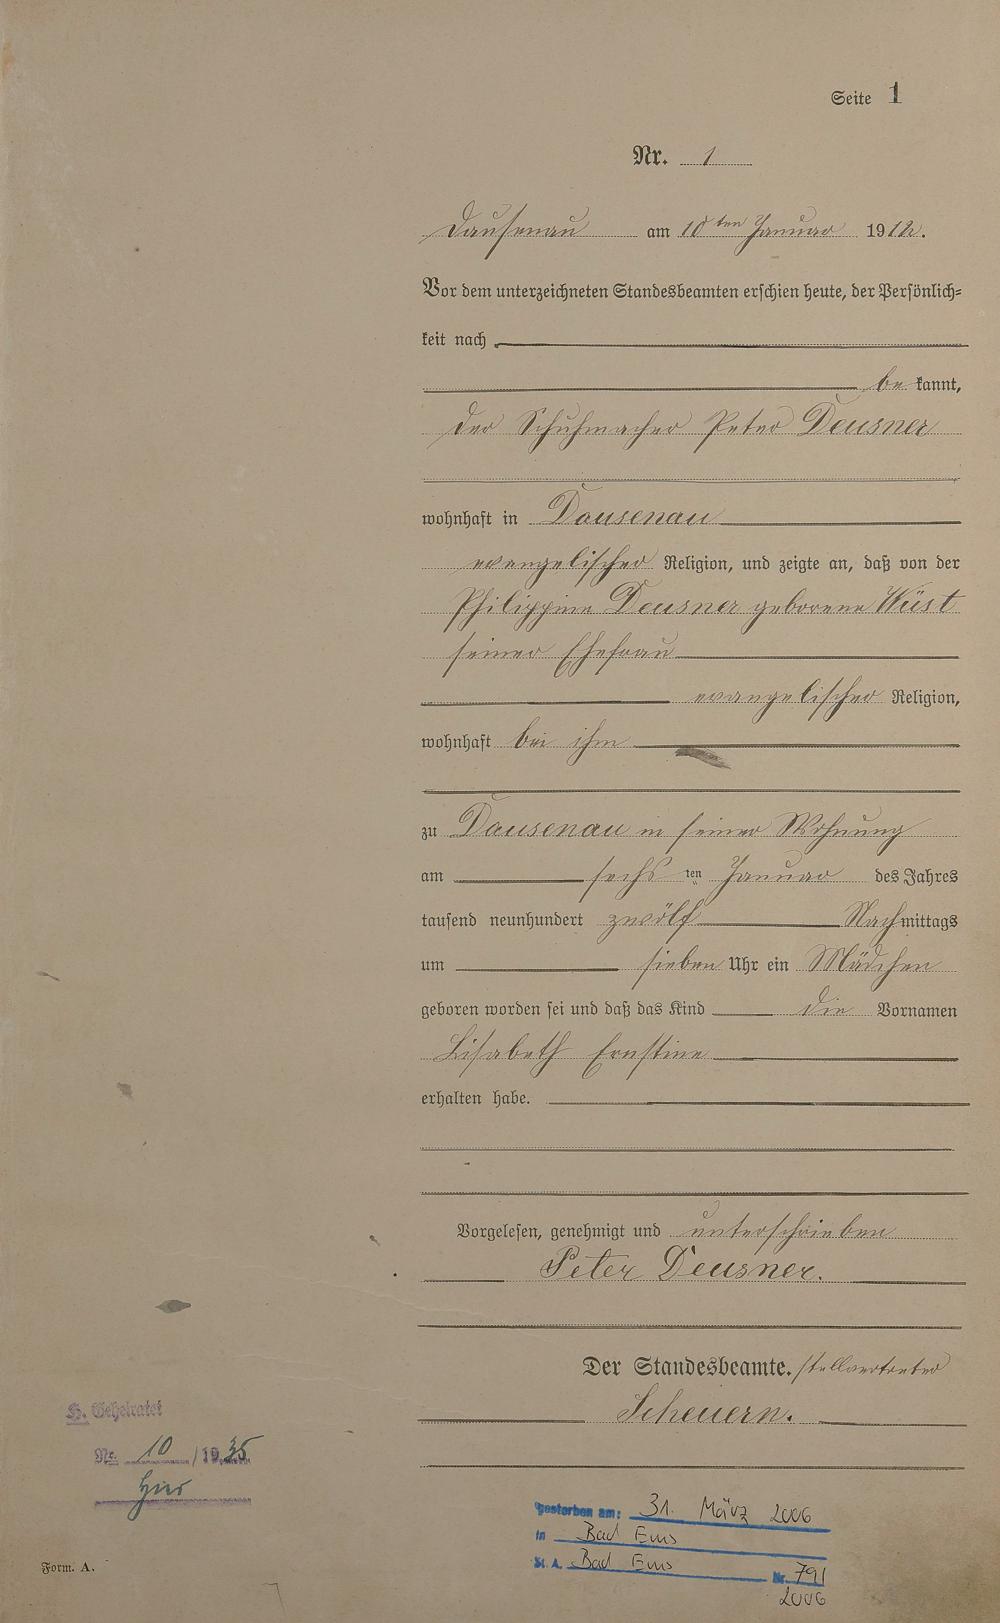 Seite 1
Nr. 1
Dausenau am 10ten Januar 1912.
Vor dem unterzeichneten Standesbeamten erschien heute, der Persönlich=
keit nach
be kannt,
der Schuhmacher Peter Deusner
wohnhaft in Dausenau
evangelischer Religion, und zeigte an, daß von der
Philippine Deusner geborene Wüst
seiner Ehefrau
evangelischer Religion,
wohnhaft bei ihm
zu Dausenau in seiner Wohnung
am sechs ten Januar des Jahres
tausend neunhundert zwölf Nachmittags
um sieben Uhr ein Mädchen
geboren worden sei und daß das Kind die Vornamen
Lisabeth Ernstine
erhalten habe.
Vorgelesen, genehmigt und unterschrieben
Peter Deusner.
Der Standesbeamte. stellvertreter
Scheuern.
H. Geheiratet
Nr. 10 / 1935
hier
gestorben am: 31. März 2006
in Bad Ems
St. A. Bad Ems Nr. 791
2006
Form. A.